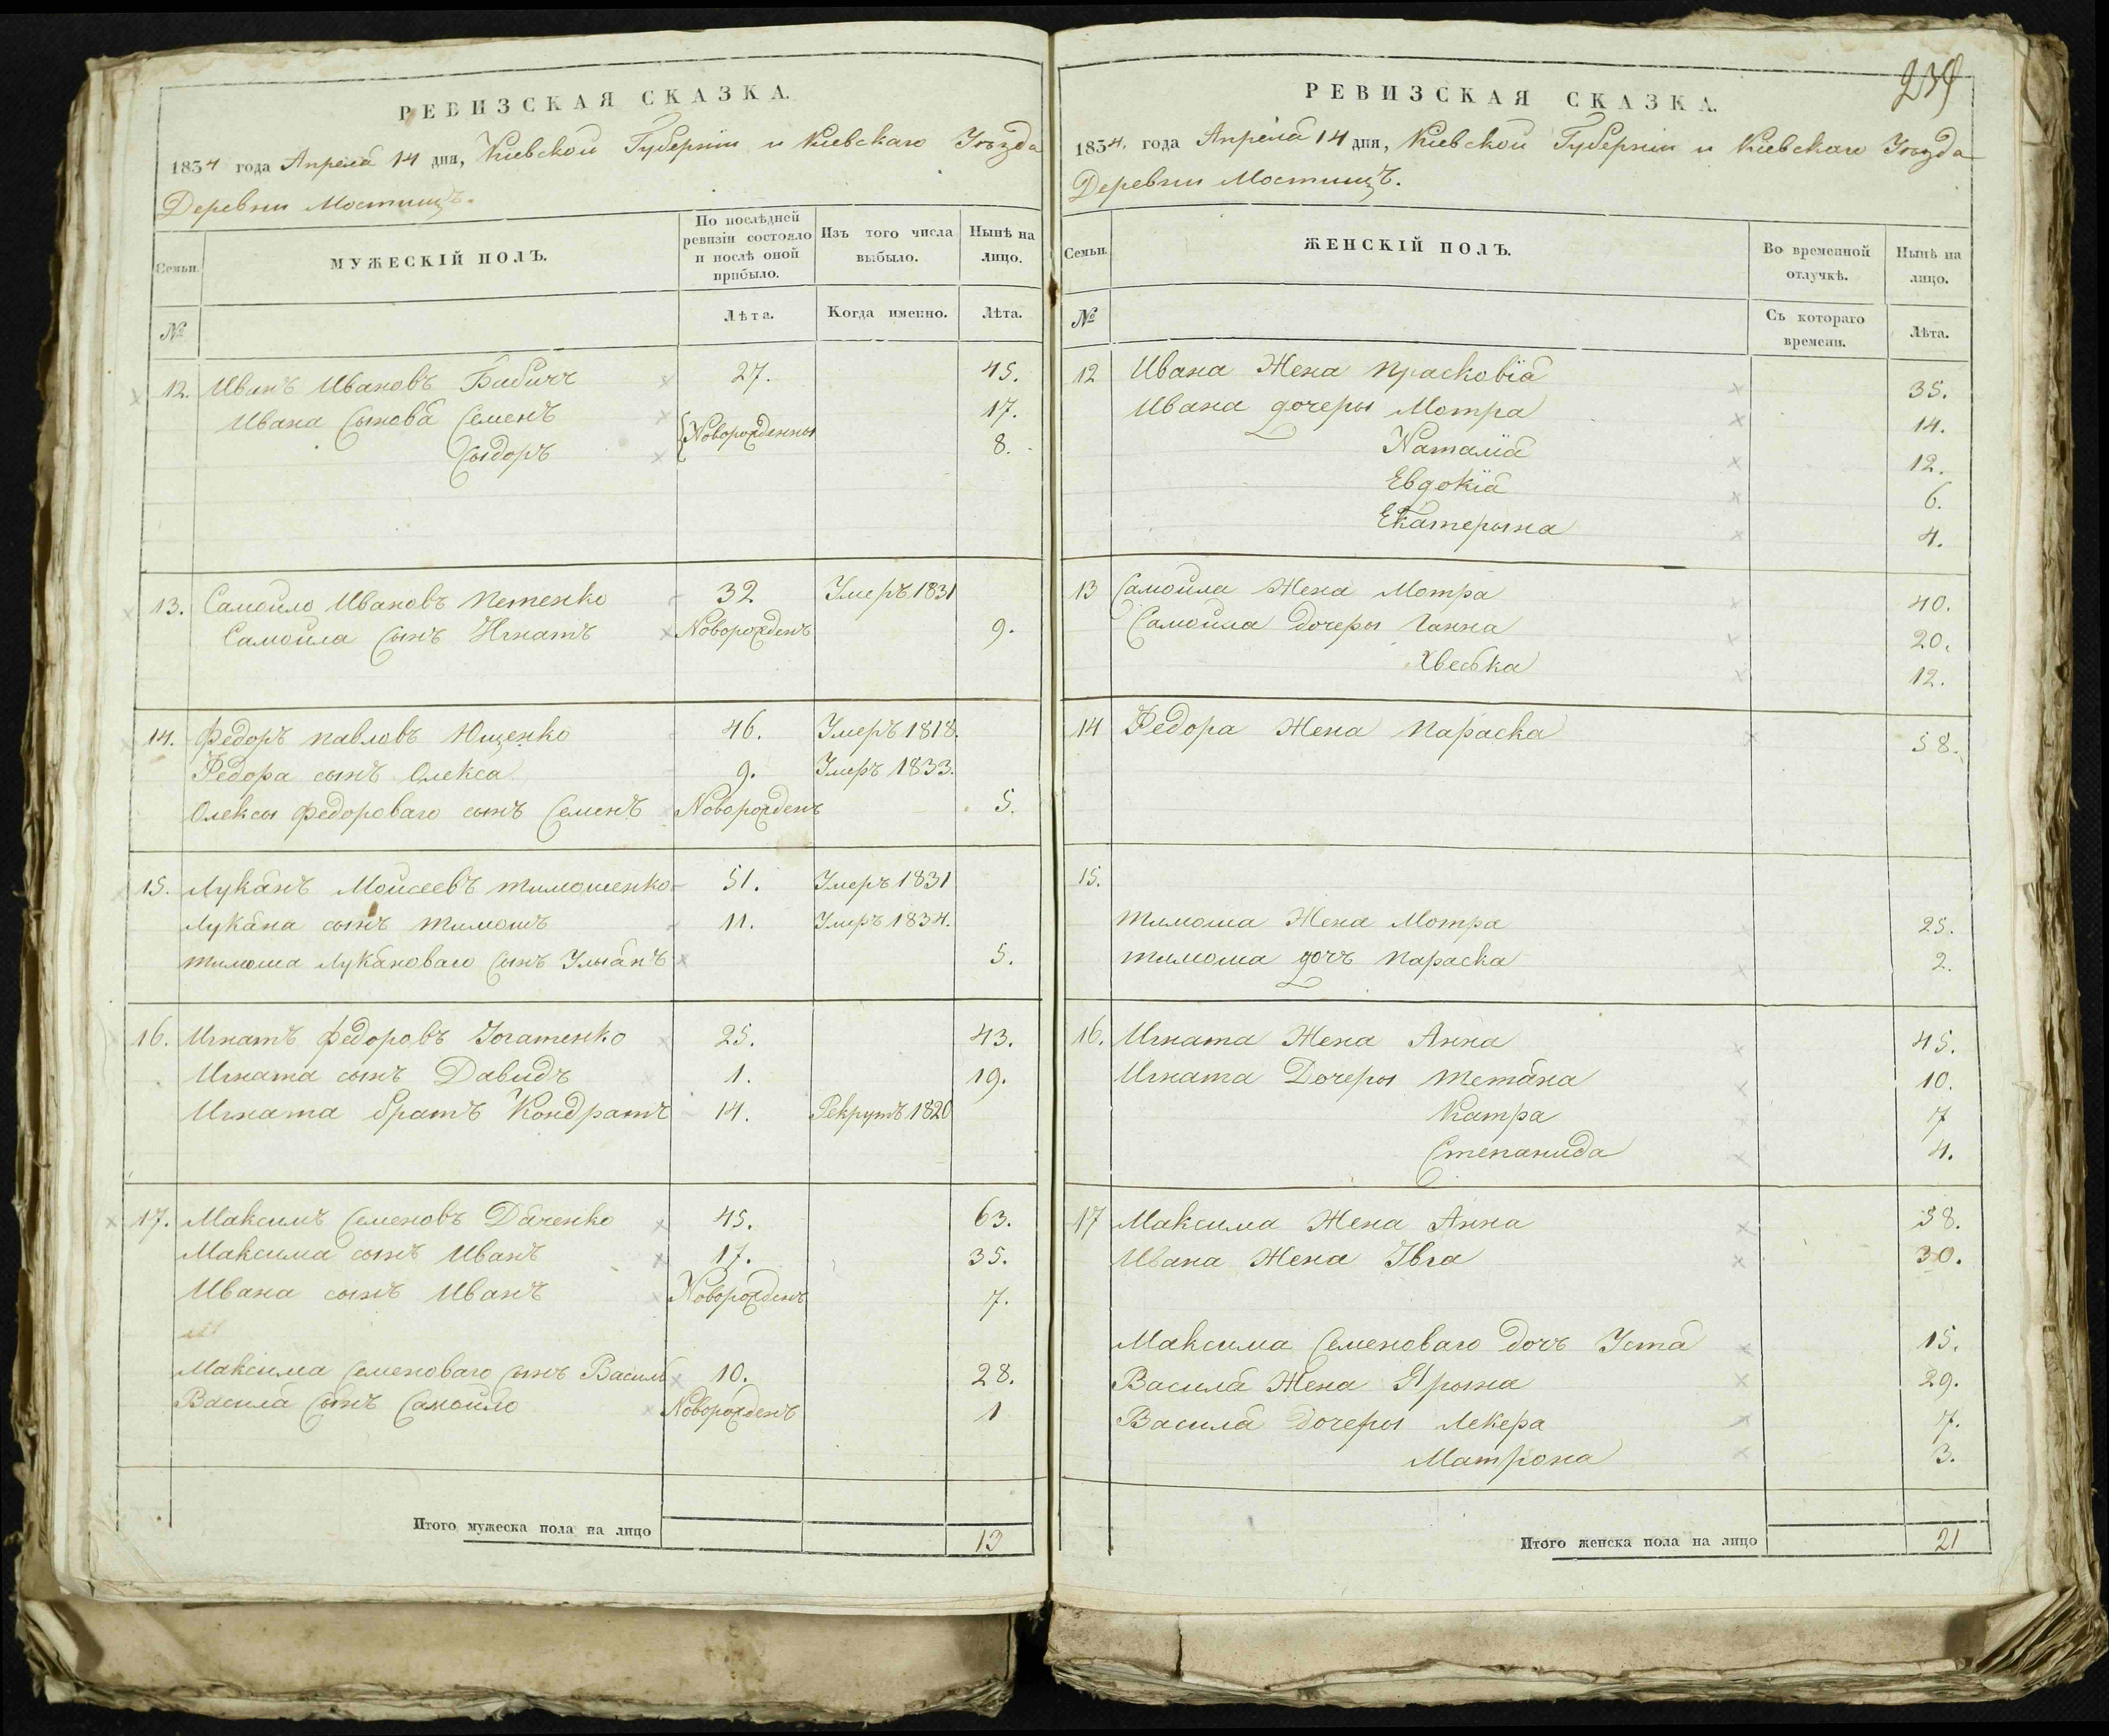 РЕВИЗСКАЯ СКАЗКА.
1834 года Апреля 14 дня, Киевской Губернии и Киевскаго Уезда
Деревни Мостищъ.
Семьи.
МУЖЕСКІЙ ПОЛЪ.
По послѣдней ревизіи состояло и послѣ оной прибыло.
Изъ того числа выбыло.
Нынѣ на лицо.
№
Лѣта.
Когда именно.
Лѣта.
12. Иванъ Ивановъ Бабичъ 27. 45.
Ивана Сынова Семенъ Новорожденны 17.
Сыдоръ 8.
13. Самойло Ивановъ Петенко 32 Умеръ 1831
Самойла Сынъ Игнатъ Новорожденъ 9.
14. Федоръ Павловъ Ющенко 46. Умеръ 1818.
Федора сынъ Олекса 9. Умеръ 1833.
Олексы Федороваго сынъ Семенъ Новорожденъ 5.
15. Луканъ Моисеевъ Тимошенко 51. Умеръ 1831
Лукана сынъ Тимошъ 11. Умеръ 1834.
Тимоша Луканового Сынъ Улыанъ 5.
16. Игнатъ Федоровъ Йогатенко 25. 43.
Игната сынъ Давидъ 1. 19.
Игната братъ Кондратъ 14. Рекрутъ 1820
17. Максимъ Семеновъ Даченко 45. 63.
Максима сынъ Иванъ 17. 35.
Ивана сынъ Иванъ Новорожденъ 7.
Максима Семеноваго сынъ Василь 10. 28.
Василя Сынъ Самойло Новорожденъ 1
Итого мужеска пола на лицо 13
239
РЕВИЗСКАЯ СКАЗКА.
1834. года Апреля 14 дня, Киевской Губернии и Киевскаго Уезда
Деревни Мостищъ.
Семьи.
ЖЕНСКІЙ ПОЛЪ.
Во временной отлучкѣ.
Нынѣ на лицо.
№
Съ котораго времени.
Лѣта.
12 Ивана Жена Прасковія 35.
Ивана дочеры Мотра 14.
Наталія 12.
Евдокія 6.
Екатерына 4.
13 Самойла Жена Мотра 40.
Самойла Дочеры Ганна 20.
Хвеська 12.
14 Федора Жена Параска 58.
15.
Тимоша Жена Мотра 25.
Тимоша дочъ Параска 2.
16. Игната Жена Анна 45.
Игната Дочеры Тетяна 10.
Катра 7
Степанида 4.
17 Максима Жена Анна 58.
Ивана Жена Ивга 30.
Максима Семеноваго дочъ Устя 15.
Василя Жена Ярына 29.
Василя Дочеры Лекера 7.
Матрона 3.
Итого женска пола на лицо 21